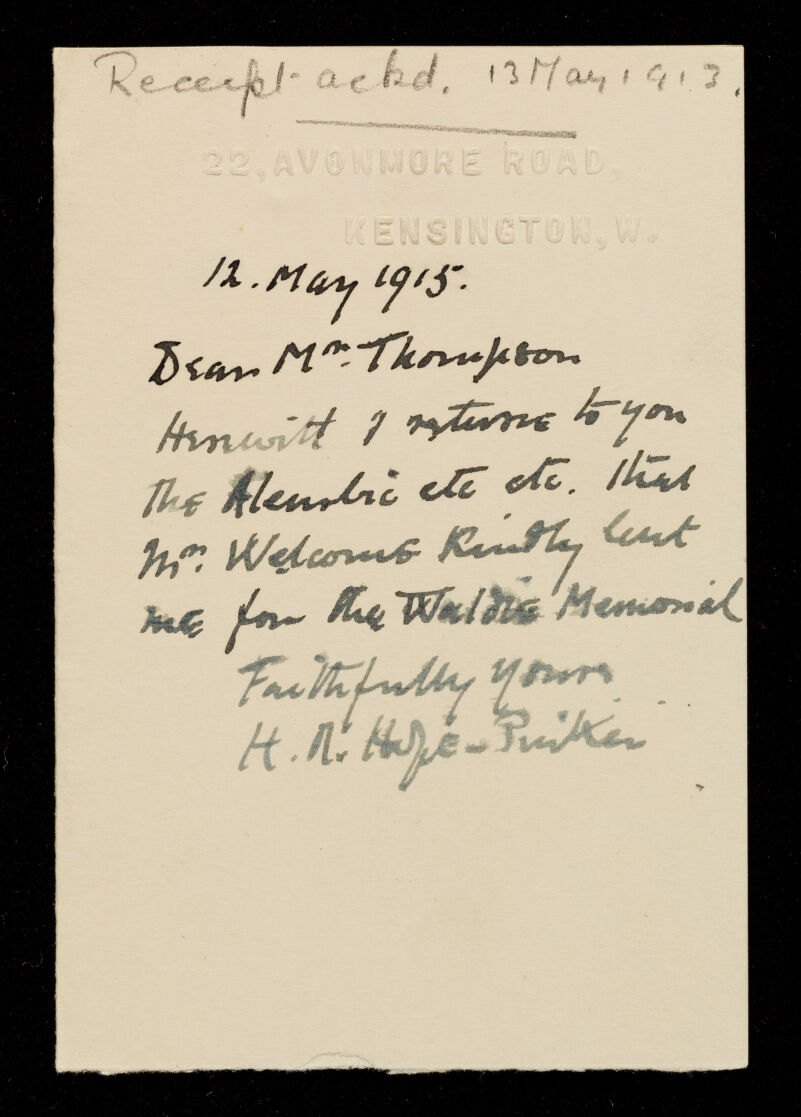 Receipt ackd. 13 May 1913.
22, AVONMORE ROAD,
KENSINGTON, W.
12. May 1915.
Dear Mr. Thompson
Herewith I returne to you
the Alembic etc etc. that
Mr. Welcome Kindly lent
me for the Waldie Memorial
Faithfully Yours
H. R. Hope-Pinker